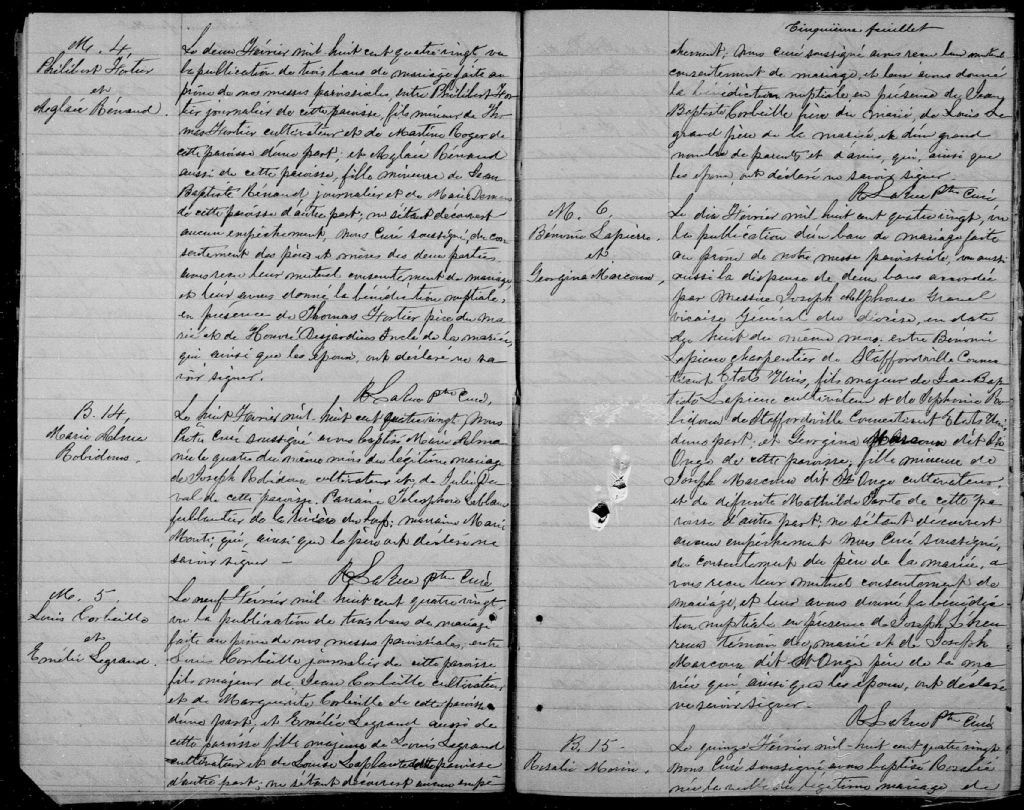 M. 4
Philibert Fortier
et
Aglaé Rénaud.
Le deux Février mil-huit cent quatre vingt, vu
la publication de trois bans de mariage faite au
prône de nos messes paroissiales, entre Philibert For-
tier journalier de cette paroisse, fils mineur de Tho-
mas Fortier cultivateur et de Martine Roger de
cette paroisse d'une part; et Aglaé Rénaud
aussi de cette paroisse, fille mineure de Jean
Baptiste Rénaud journalier et de Marie Demers
de cette paroisse d'autre part; ne s'étant découvert
aucun empêchement, Nous Curé soussigné, du con-
sentement des pères et mères des deux parties
avons reçu leur mutuel consentement de mariage
et leur avons donné la bénédiction nuptiale,
en présence de Thomas Fortier père du ma-
rié et de Honoré Desjardins oncle de la mariée,
qui ainsi que les époux, ont déclaré ne sa-
voir signer.
Ptre Curé,
B. 14,
Marie Alma
Robidoux.
Le huit Février mil-huit cent quatre vingt, Nous
Prêtre Curé soussigné avons baptisé Marie Alma
née le quatre du même mois du légitime mariage
de Joseph Robidoux cultivateur et de Julie Du-
val de cette paroisse. Parrain Télesphore Leblanc
ferblantier de la rivière du loup; marraine Marie
qui, ainsi que le père ont déclaré ne
savoir signer
Ptre Curé
M. 5
Louis Corbeille
et
Emélie Legrand.
Le neuf Février mil-huit cent quatre vingt,
vu la publication de trois bans de mariage
faite au prône de nos messes paroissiales, entre
Louis Corbeille journalier de cette paroisse
fils majeur de Jean Corbeille cultivateur
et de Marguerite Corbeille de cette paroisse
d'une part, et Emélie Legrand aussi de
cette paroisse fille majeure de Louis Legrand
cultivateur et de Louise Laplante de cette paroisse
d'autre part; ne s'étant découvert aucun empê-
Cinquième feuillet
chement, Nous curé soussigné avons reçu leur mutuel
consentement de mariage, et leur avons donné
la bénédiction nuptiale en présence de Jean
Baptiste Corbeille frère du marié, de Louis Le-
grand père de la mariée, et d'un grand
nombre de parents et d'amis, qui, ainsi que
les époux, ont déclaré ne savoir signer.
Ptre Curé,
M. 6.
Bénonie Lapierre
et
Georgina Marcoux,
Le dix Février mil huit cent quatre vingt, vu
la publication d'un ban de mariage faite
au prône de notre messe paroissiale, vu aussi
aussi la dispense de deux bans accordée
par Messire Joseph Alphonse Gravel
vicaire Général du diocèse, en date
du huit du même mois, entre Bénonie
Lapierre charpentier de Staffordville Connec-
ticut Etats Unis, fils majeur de Jean Bap-
tiste Lapierre cultivateur et de Sophronie Ro-
bidoux de Staffordville Connecticut Etats Unis
d'une part, et Georgina Marcoux dit St
Onge de cette paroisse, fille mineure de
Joseph Marcoux dit St Onge cultivateur
et de défunte Mathilde de cette pa-
roisse d'autre part; ne s'étant découvert
aucun empêchement Nous Curé soussigné,
du consentement du père de la mariée, a-
vons reçu leur mutuel consentement de
mariage, et leur avons donné la bénédic-
tion nuptiale en présence de Joseph Lheu-
reux témoin du marié et de Joseph
Marcoux dit St Onge père de la ma-
riée qui ainsi que les époux, ont déclaré
ne savoir signer.
Ptre Curé
B. 15
Rosalie Morin.
Le quinze Février mil-huit cent quatre vingt
nous Curé soussigné avons baptisé Rosalie
née la veille du légitime mariage de